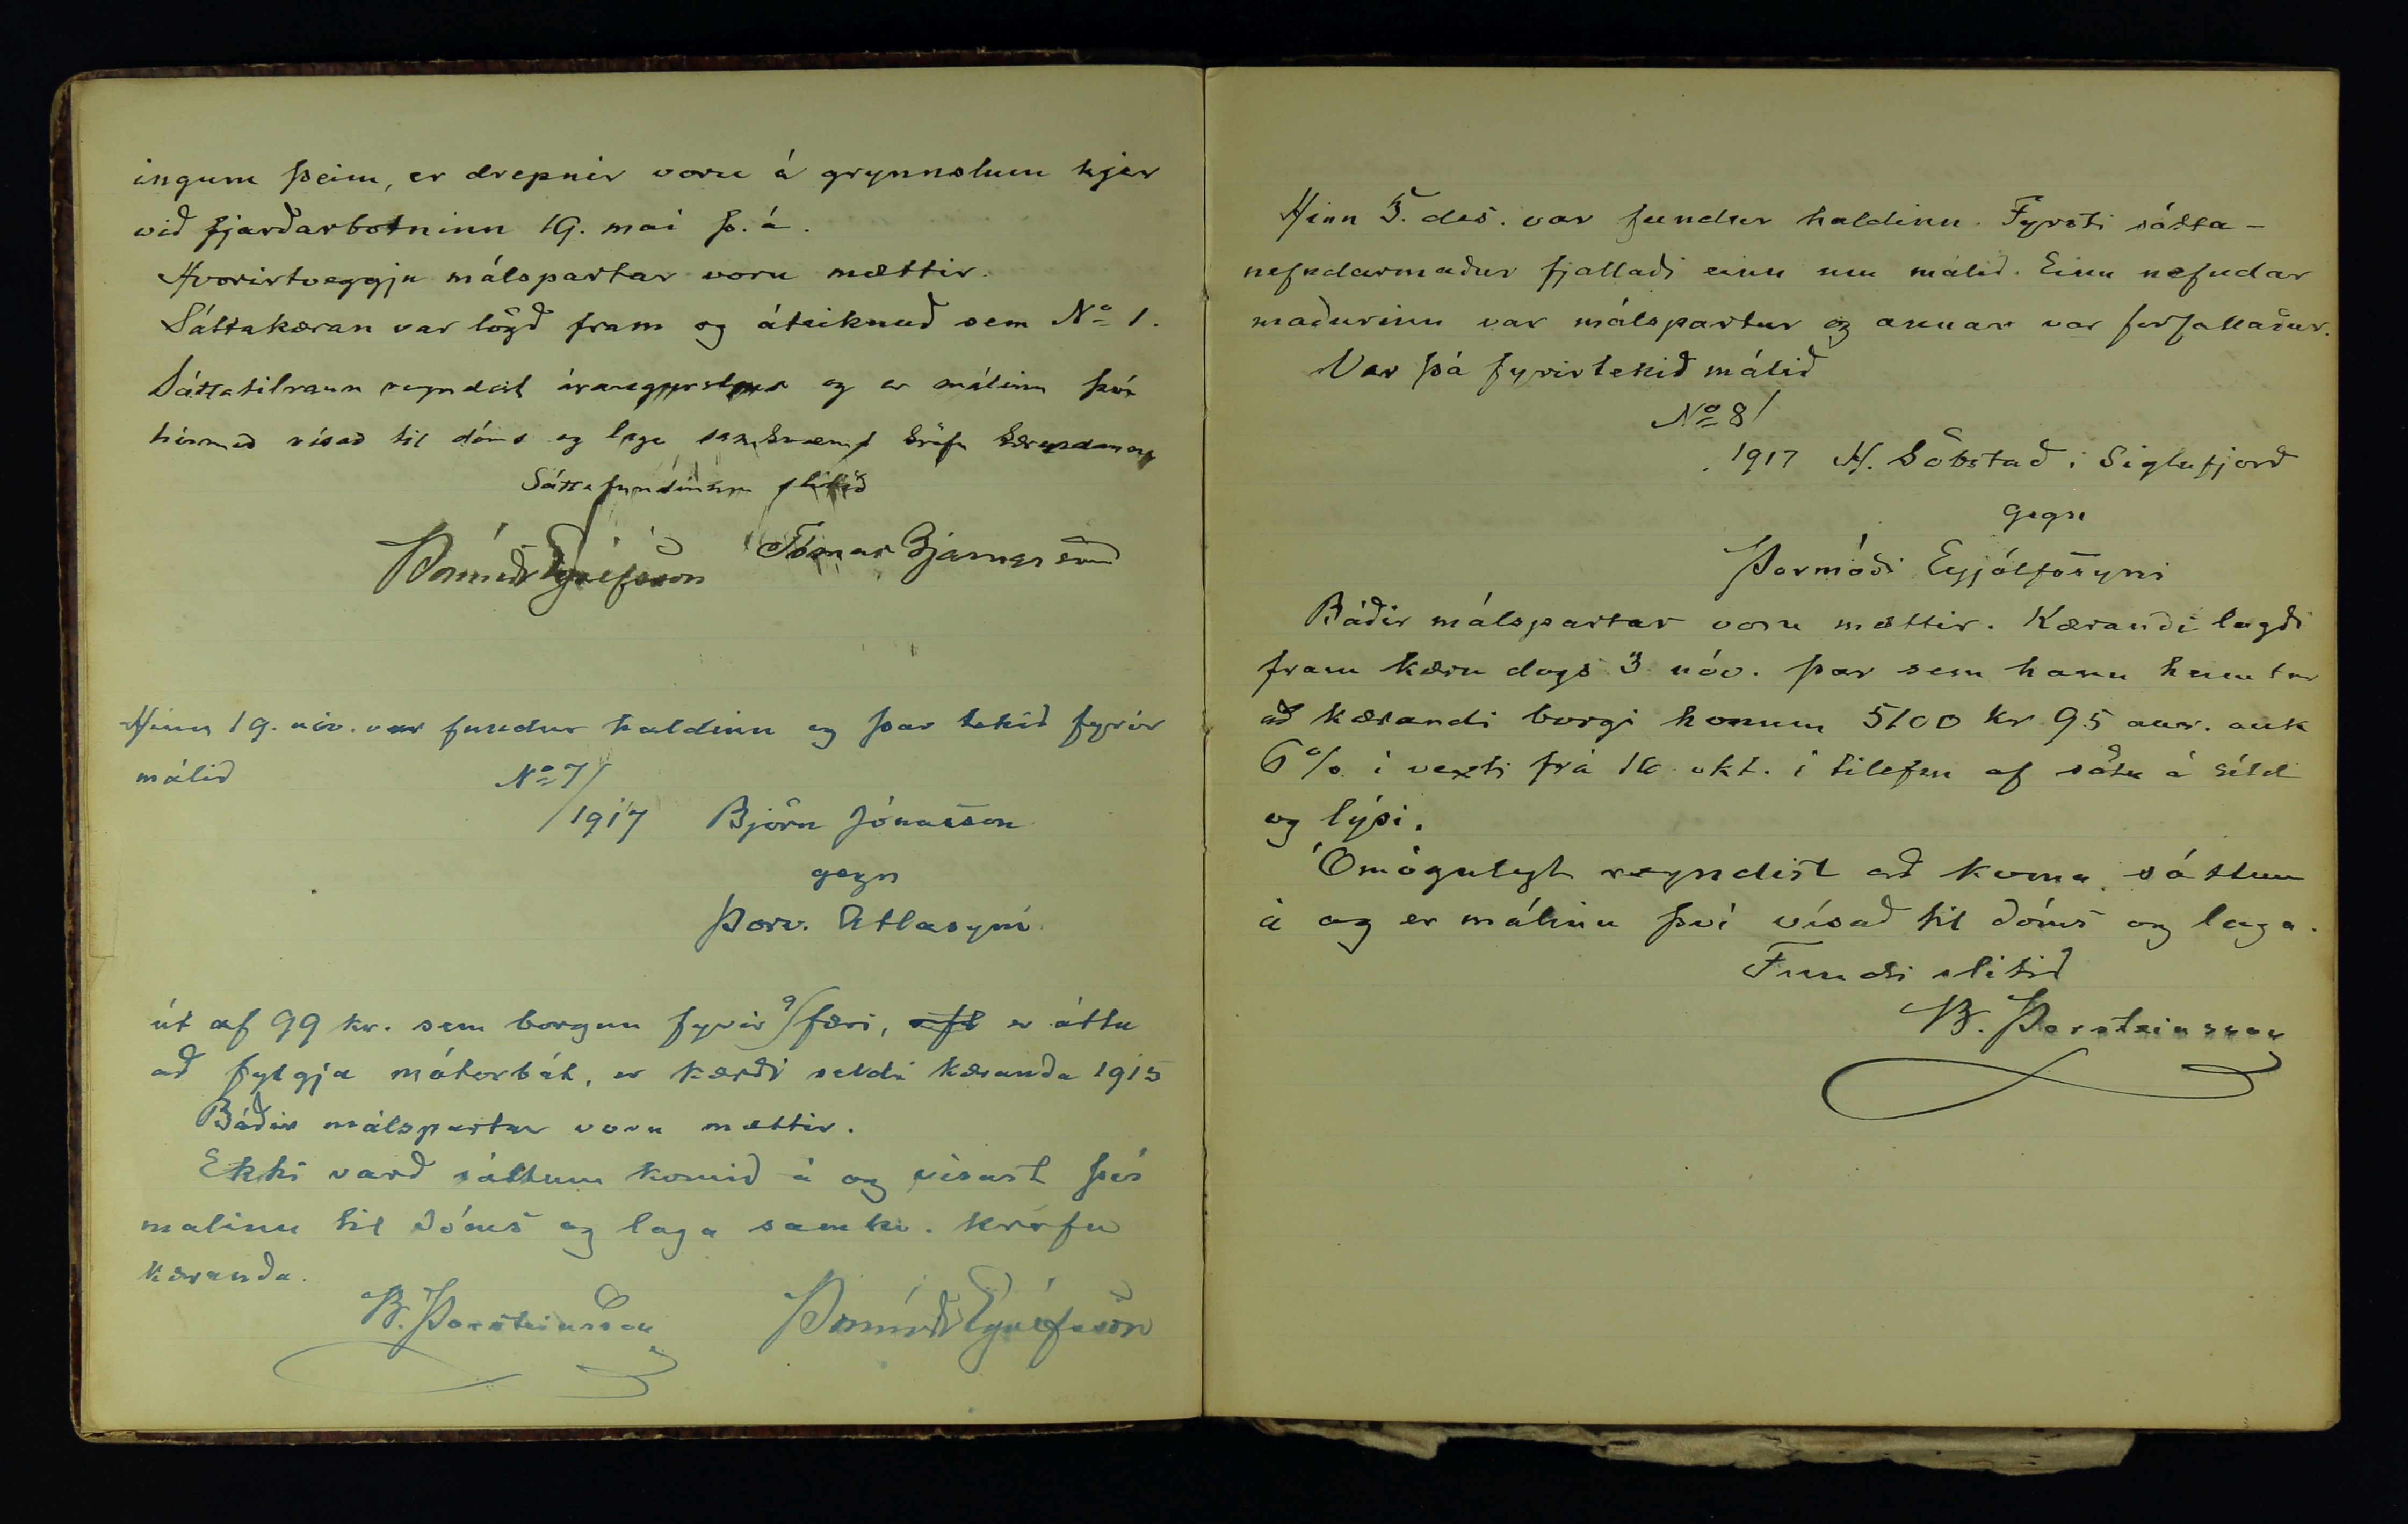 ingum þeim, er drepnir voru á grynnslum hjer
við fjarðarbotninn 19. mai þ. á.
Hvorirtveggju málspartar voru mættir.
Sáttakæran var lögð fram og áteiknuð sem No 1.
Sáttatilraun reyndist árangurslaus og er málinu því
hérmeð vísað til dóms og laga samkvæmt kröfu kærendanna
Sáttafundinum slitið
Þormóður Eyjólfsson Tómas Bjarnason
Hinn 19. nóv. var fundur haldinn og þar tekið fyrir
málið No 7/
/1917 Björn Jónasson
gegn
Þorv. Atlasyni
út af 99 kr. sem borgun fyrir 9/færi, er áttu
að fylgja mótorbát, er kærði seldi kæranda 1915
Báðir málspartar voru mættir.
Ekki varð sáttum komið á og vísast því
malinu til dóms og laga samkv. kröfu
kæranda.
B. Þorsteinsson Þormóður Eyjólfsson
Hinn 5. des. var fundur haldinn. Fyrsti sátta-
nefndarmaður fjallaði einn um málið. Einn nefndar
maðurinn var málspartur og annar var forfallaður.
Var þá fyrirtekið málið
No 8/
1917 H. Söbstað i Siglufjorð
gegn
Þormóði Eyjólfssyni
Báðir málspartar voru mættir. Kærandi lagði
fram kæru dags 3 nóv. þar sem hann heimtar
að kærandi borgi honum 5100 kr 95 aur. auk
6% i vexti frá okt. i tilefni af sölu á síld
og lýsi.
Ómögulegt reyndist að koma sáttum
á og er málinu því vísað til dóms og laga.
Fundi slitið
B. Þorsteinsson